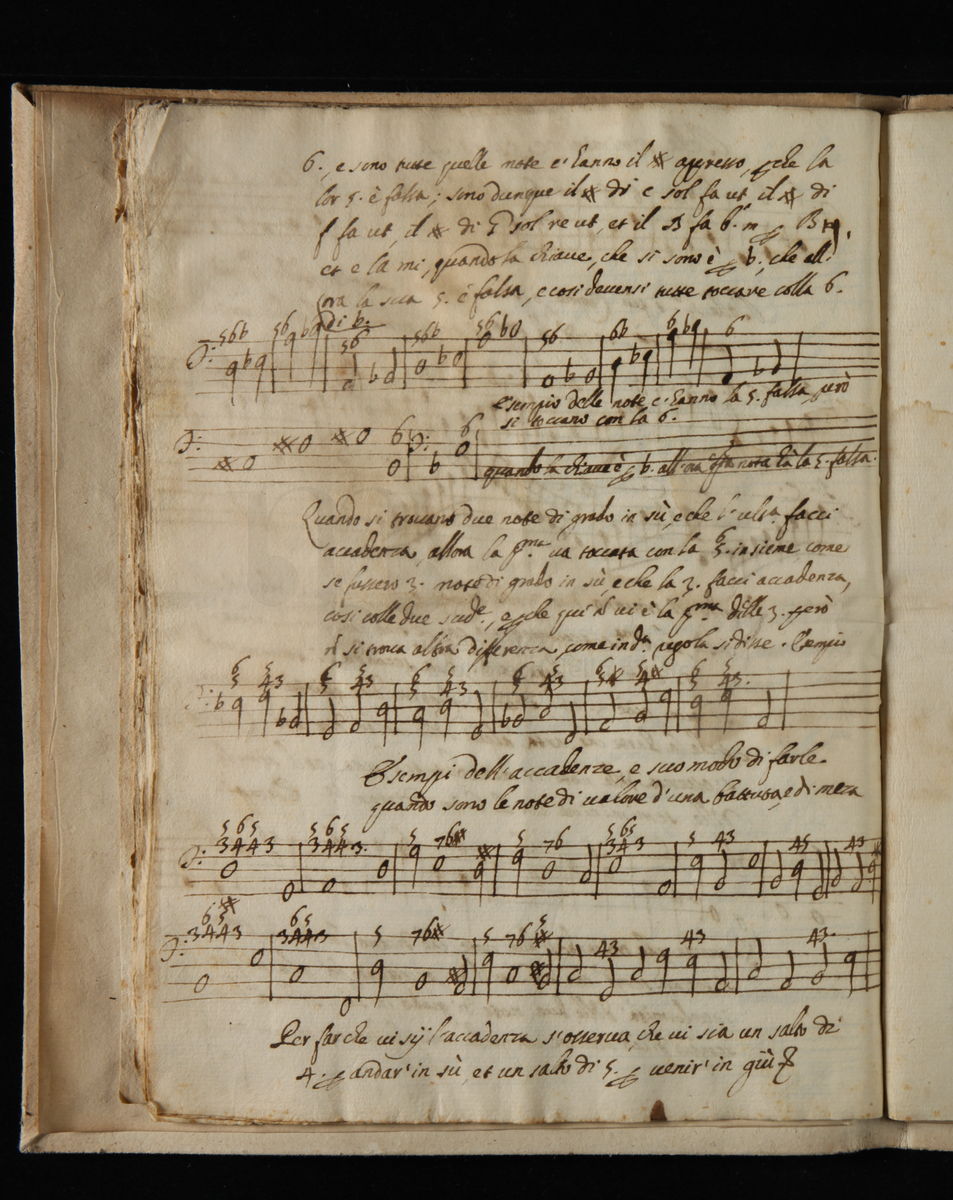 6., e sono tutte quelle note c'hanno il ※ appresso, che la
lor 5. è falsa; sono dunque il ※ di c sol fa ut, il ※ di
f fa ut, il ※ di G sol re ut, et il B fa b. m
et e la mi, quando la chiave, che si sono è b, che all:
ora la sua 5. è falsa, e così devensi tutte toccare colla 6.
di b.
56b 56 b 56 56b 56 b 56 6b 6 b 6
esempio delle note c'hanno la 5. falsa, però
si toccano con la 6.
6 6
quando la chiave è b. all'ora questa nota hà la 5. falsa.
Quando si trovano due note di grado in sù, e che l'ult.a facci
accadenza, allora la p.ma va toccata con la 6 5. insieme come
se fussero 3. note di grado in sù e che la 3. facci accadenza,
così colle due sud.e, e che qui vi è la p.ma delle 3. però
si trova altra differenza, come in d.a regola si disse. Esempio
6 5 5 43 6 5 5 43 6 5 5 43 6 5 5 43 6 5 ※ 5 4 ※ 6 5 5 43.
Esempi dell'accadenze, e suo modo di farle.
quando sono le note di valore d'una battuta, e di meza
565 3443 565 3443. 5 76※ ※ 5 76 565 343 5 43 45 43
65 3443 65 3443 5 76※ 5 76 5※ 43 43 43.
Per far che vi sij l'accadenza s'osserva, che vi sia un salto di
4. andar' in sù, et un salto di 5. venir' in giù